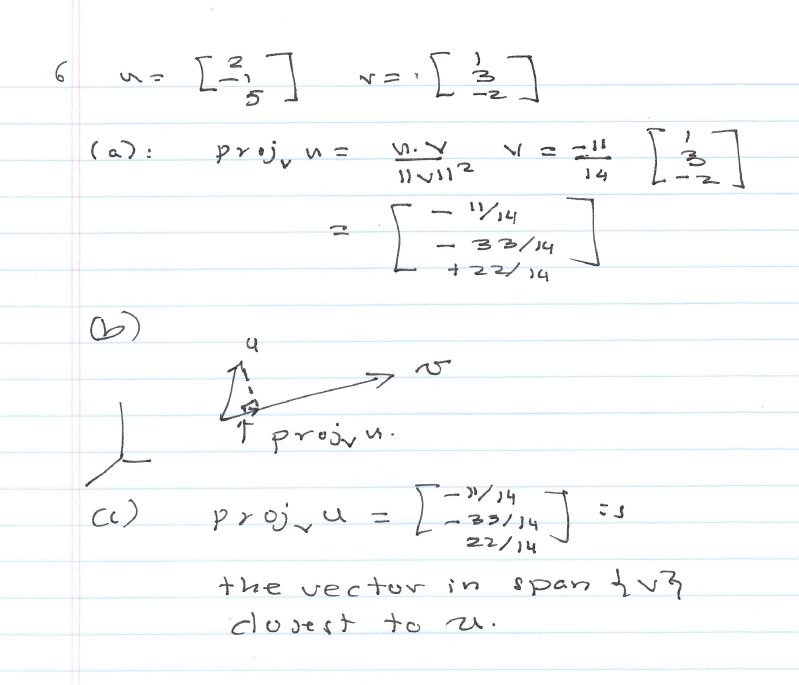 6 u = [2 -1 5] v = [1 3 -2]
(a): proj_v u = u.v/||v||² v = -11/14 [1 3 -2]
= [-11/14 -33/14 +22/14]
(b)
u
v
↑ proj_v u.
(c) proj_v u = [-11/14 -33/14 22/14] is
the vector in span {v}
closest to u.